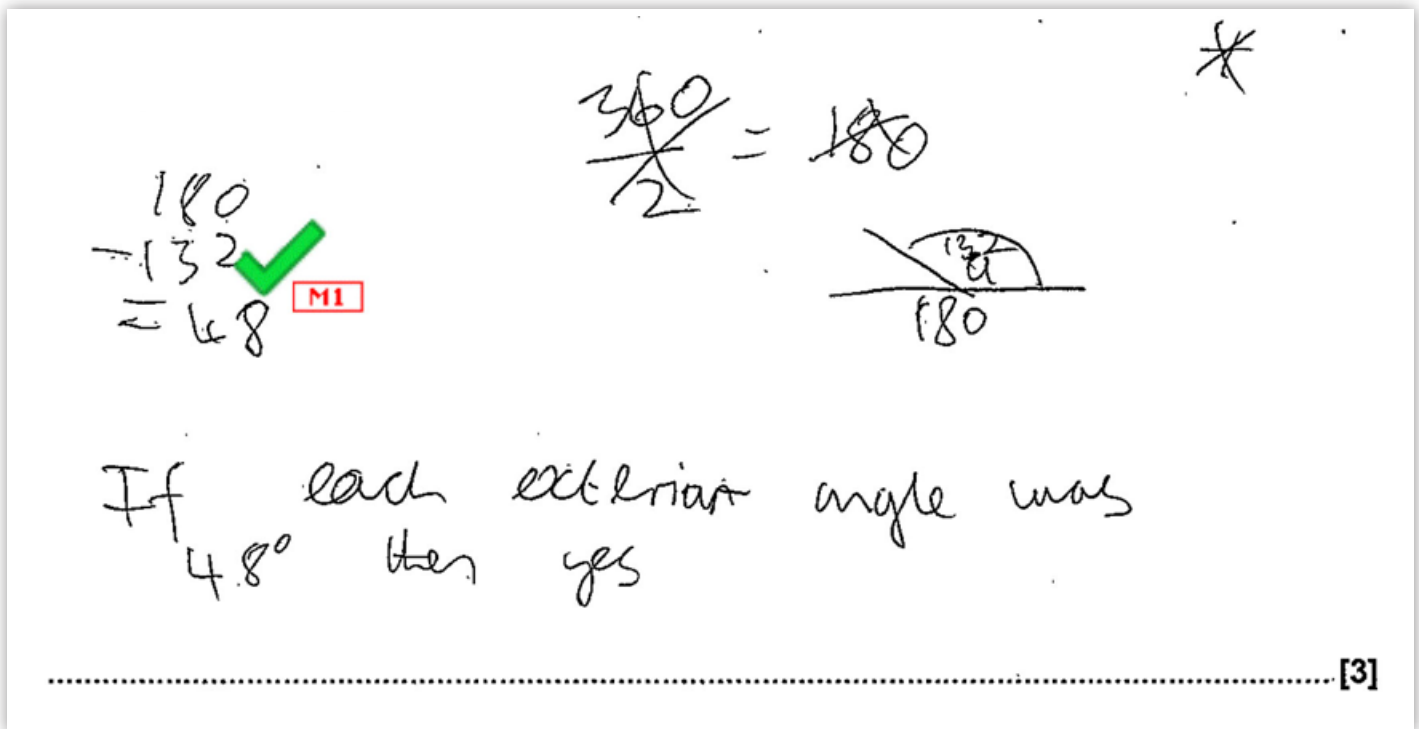 360
2 = 180
180
-132
M1
= 48
132
a
180
If each exterior angle was
48° then yes
[3]